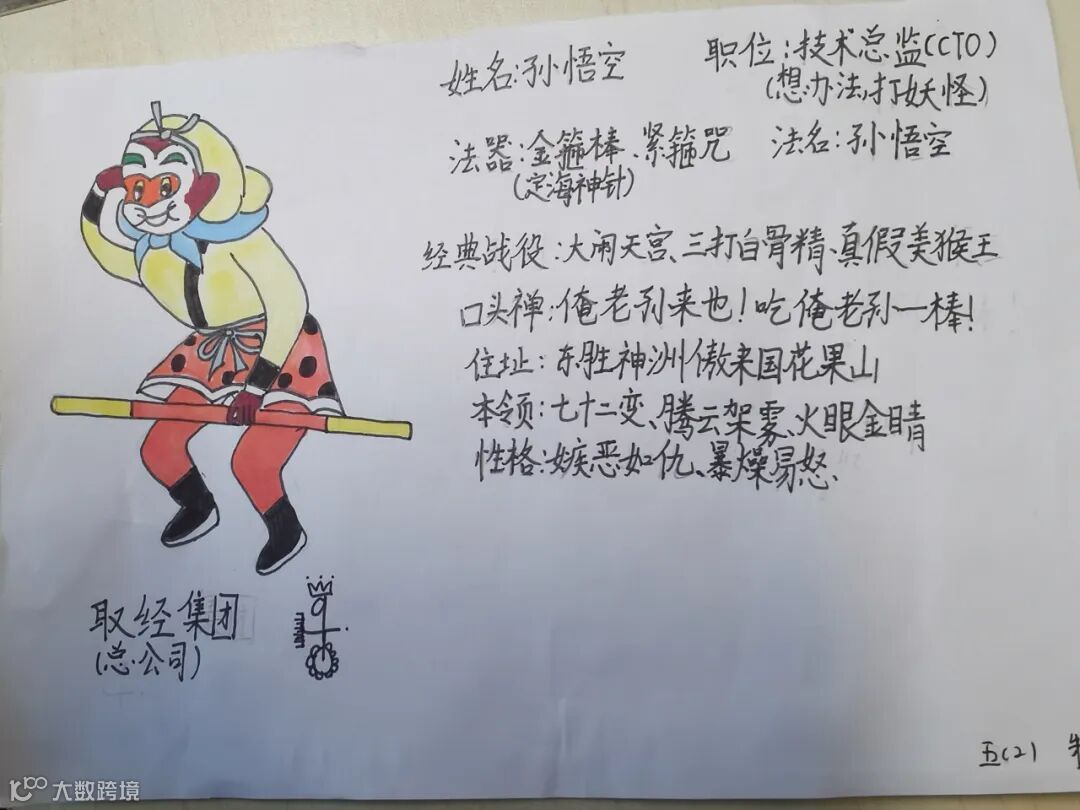 姓名:孙悟空 职位:技术总监(CTO)
(想办法,打妖怪)
法器:金箍棒、紧箍咒 法名:孙悟空
(定海神针)
经典战役:大闹天宫、三打白骨精、真假美猴王
口头禅:俺老孙来也!吃俺老孙一棒!
住址:东胜神洲傲来国花果山
本领:七十二变、腾云架雾、火眼金睛
性格:嫉恶如仇、暴燥易怒.
取经集团
(总公司)
五(2)
大数跨境